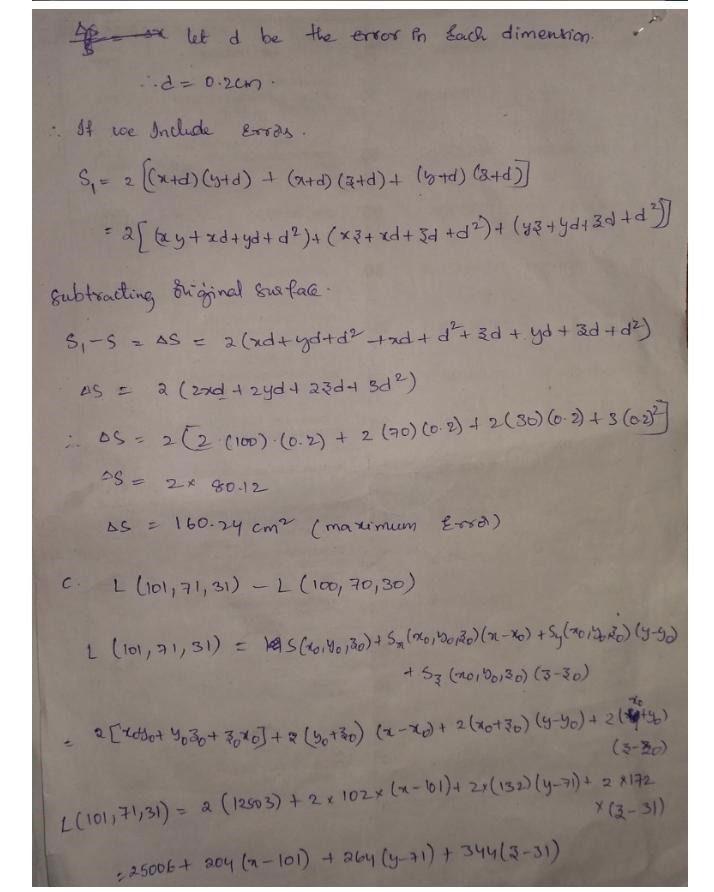 let d be the error in Each dimension.
∴ d = 0.2cm.
∴ If we Include Errors.
S₁ = 2 [(x+d)(y+d) + (x+d)(z+d) + (y+d)(z+d)]
= 2[(xy + xd + yd + d²) + (xz + xd + zd + d²) + (yz + yd + zd + d²)]
Subtracting Original Surface.
S₁ - S = ΔS = 2(xd + yd + d² + xd + d² + zd + yd + zd + d²)
ΔS = 2 (2xd + 2yd + 2zd + 3d²)
∴ ΔS = 2 [2·(100)·(0.2) + 2 (70)(0.2) + 2(30)(0.2) + 3(0.2)²]
ΔS = 2 × 80.12
ΔS = 160.24 cm² (maximum Error)
C. L (101, 71, 31) - L (100, 70, 30)
L (101, 71, 31) = S(x₀, y₀, z₀) + Sₓ(x₀, y₀, z₀)(x-x₀) + Sy(x₀, y₀, z₀)(y-y₀)
+ Sz (x₀, y₀, z₀) (z-z₀)
= 2[x₀y₀ + y₀z₀ + z₀x₀] + 2(y₀+z₀) (x-x₀) + 2(x₀+z₀)(y-y₀) + 2(x₀+y₀)
(z-z₀)
L(101, 71, 31) = 2 (12503) + 2 × 102 × (x-101) + 2×(132)(y-71) + 2 × 172
× (z-31)
= 25006 + 204 (x-101) + 264 (y-71) + 344(z-31)